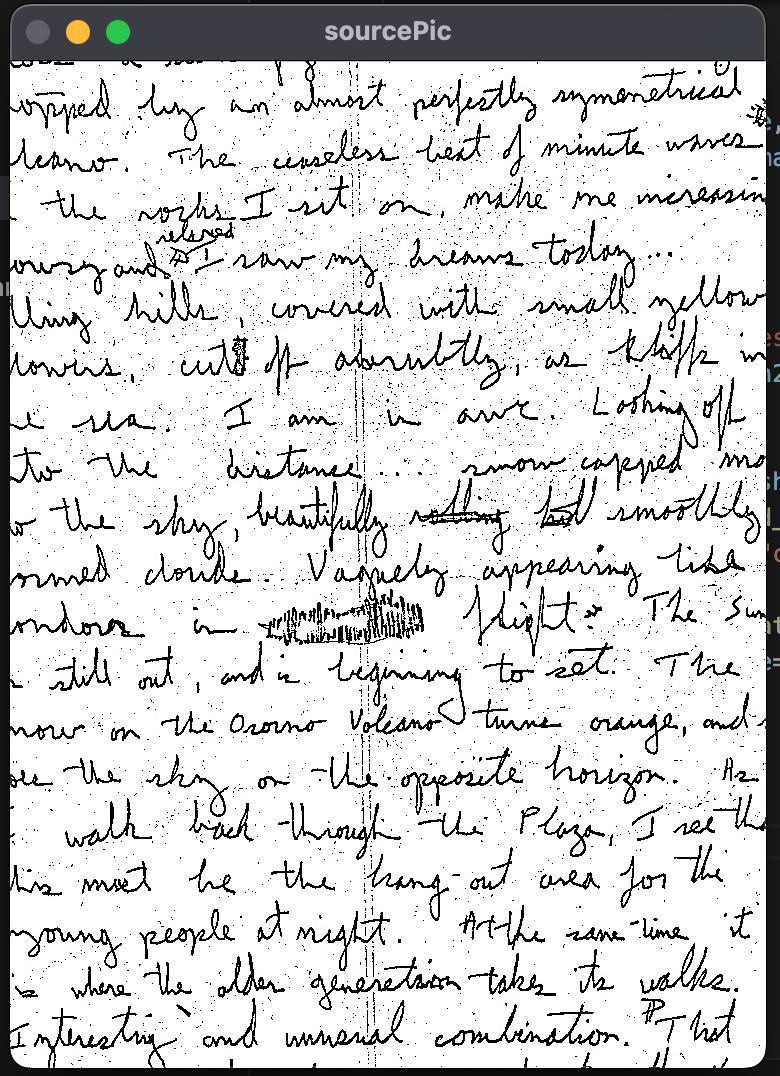 sourcePic
opped by an almost perfectly symmetrical
lcano. The ceaseless beat of minute waves
the rocks I sit on, make me increasin
relaxed
owsy and I saw my dreams today...
lling hills, covered with small yellow
lowers, cut off abrubtly, as kliffs in
e sea. I am in awe. Looking off
nto the distance... snow capped mo
o the sky, beautifully rolling hill smoothly
ormed clouds. Vaguely appearing like
ondors in flight. The Sun
s still out, and is beginning to set. The
now on the Osorno Volcano turns orange, and
oes the sky on the opposite horizon. As
I walk back through the Plaza, I see tha
this must be the hang-out area for the
young people at night. At the same time it
is where the older generation takes its walks.
Interesting and unusual combination. That